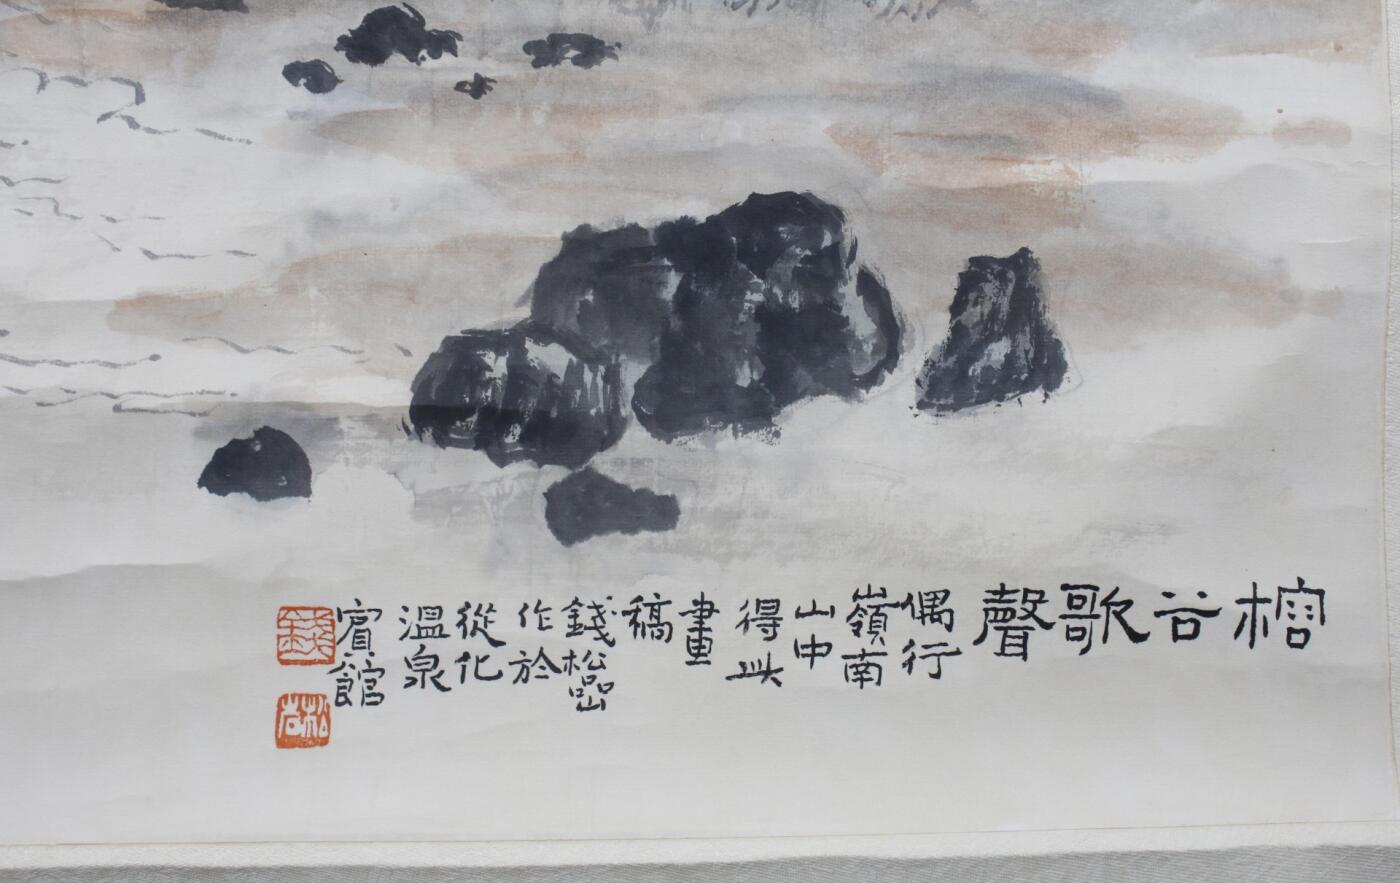 榕谷歌聲
偶行
嶺南
山中
得此
畫
稿
錢松喦
作於
從化
溫泉
賓館
錢
松喦